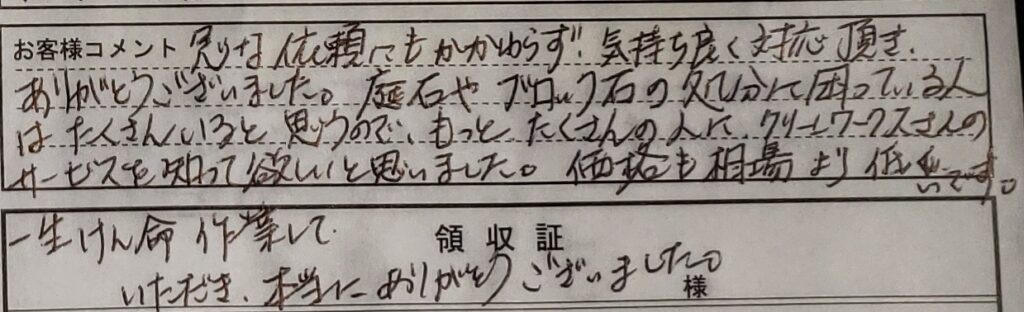 お客様コメント 急な依頼にもかかわらず、気持ち良く対応頂き、
ありがとうございました。庭石やブロック石の処分に困っている人
はたくさんいると思うので、もっとたくさんの人にクリーンワークスさんの
サービスを知って欲しいと思いました。価格も相場より低いです。
一生けん命作業して
領収証
いただき、本当にありがとうございました。
様